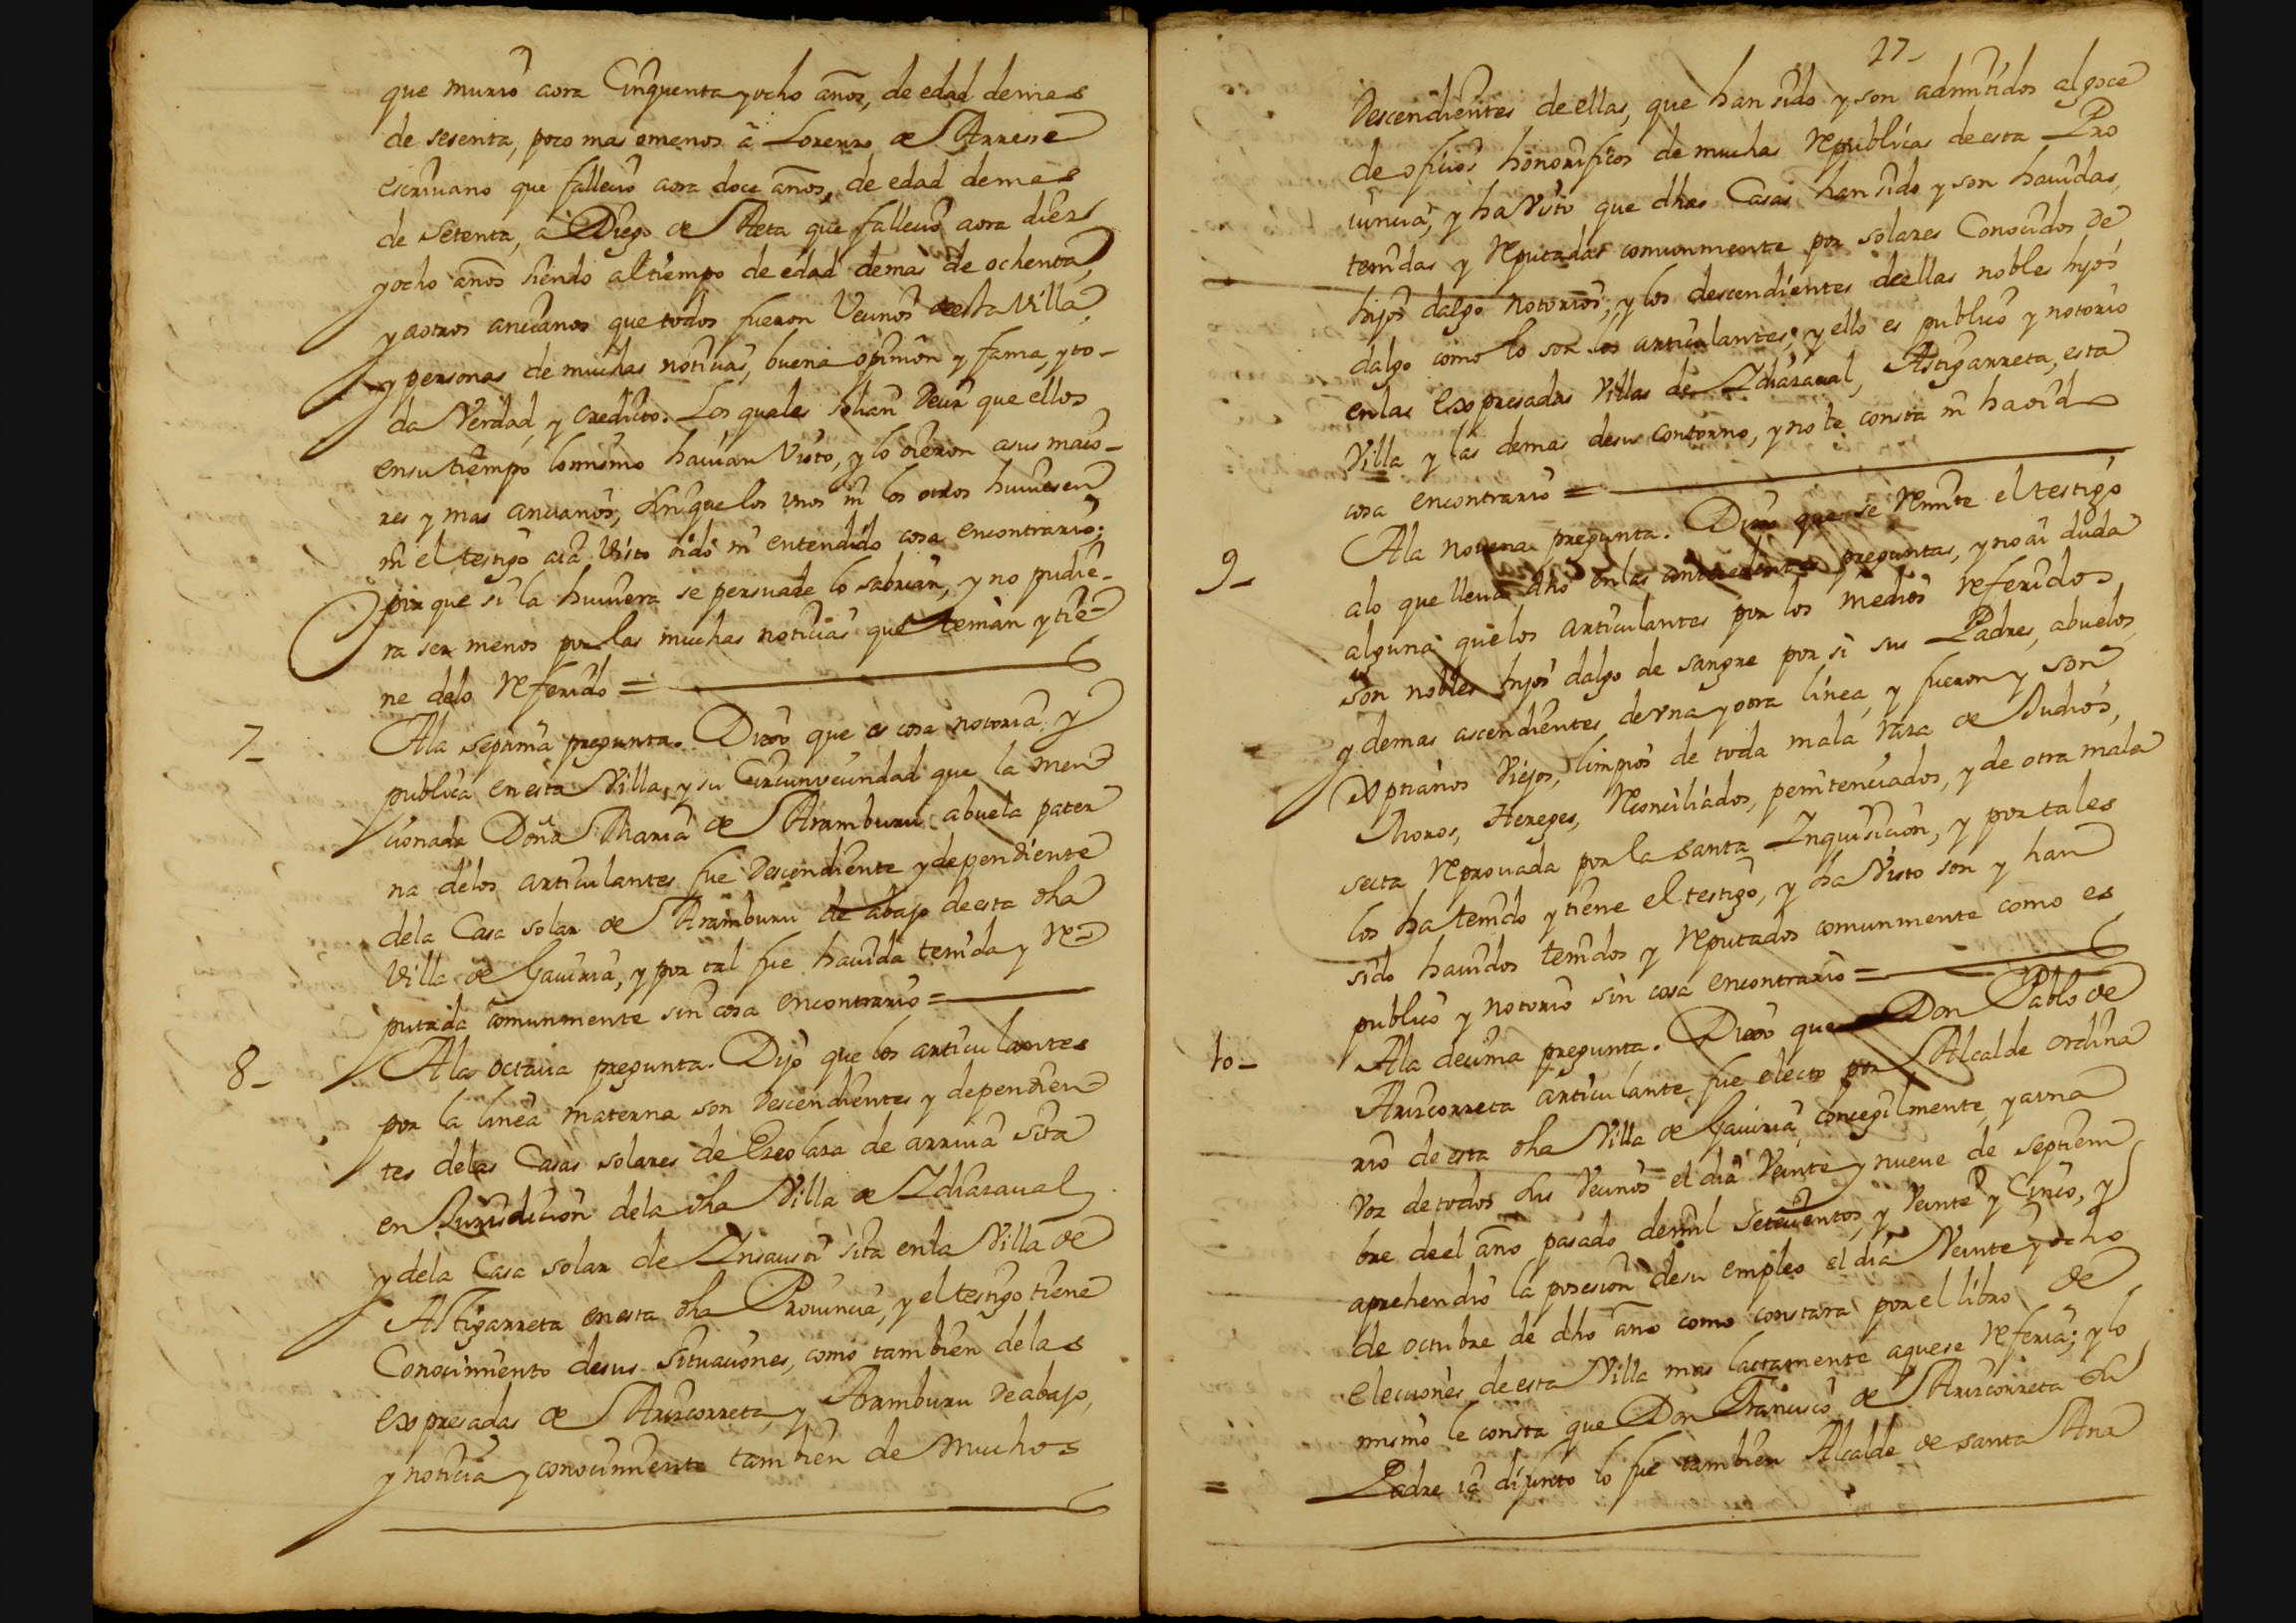 que murio aora Cinquenta y ocho años, de edad demas
de sesenta, poco mas omenos â Lorenzo de Arrese
escriuano que fallecio aora doce años, de edad demas
de setenta, a Diego de Aeta que fallecio aora diez
y ocho años siendo altiempo de edad demas de ochenta,
y aotros ancianos que todos fueron Vecinos desta Villa,
y personas de muchas noticias, buena opinion y fama, y to-
da Verdad, y credito. Los quales solian Decir que ellos
ensu tiempo lomismo hauian Visto, y lo oieron asus maio-
res y mas ancianos, sin que los vnos ni los otros huuiesen
ni el testigo aia Visto oido ni entendido cosa encontrario;
porque si la huuiera se persuade lo sabrian, y no pudie-
ra ser menos por las muchas noticias que tenian y tie-
ne delo referido =
7_ Ala septima pregunta. Dixo que es cosa notoria, y
publica en esta Villa, y su Circunvecindad que la men-
cionada Doña Maria de Aramburu abuela pater
na delos articulantes fue Descendiente y dependiente
dela Casa solar de Aramburu de abajo de esta dha
Villa de Gauiria, y por tal fue hauida tenida y re-
putada comunmente sin cosa encontrario =
8_ Ala octaua pregunta. Dijo que los articulantes
por la linea materna son Descendientes y dependien-
tes delas Casas solares de Ereolaza de arriua sita
en Jurisdicion dela dha Villa de Ydiazaual,
y dela Casa solar de Ynsausti sita en la Villa de
Astigarreta en esta dha Prouincia, y el testigo tiene
Conocimiento desus situaciones, como tambien delas
expresadas de Arizcorreta, y Aramburu de abajo,
y noticia y conocimiento tambien de muchos
27_
Descendientes de ellas, que han sido y son admitidos al goce
de oficios honorificos de muchas republicas de esta Pro
uincia, y ha Visto que dhas Casas han sido y son hauidas,
tenidas y reputadas comunmente por solares Conocidos de
hijos dalgo notorios; y los descendientes de ellas nobles hijos
dalgo como lo son los articulantes; y ello es publico y notorio
en las expresadas Villas de Ydiazaual, Astigarreta, esta
Villa y las demas desu contorno, y no le consta ni ha oido
cosa encontrario =
9_ Ala nouena pregunta. Dixo que se remite el testigo
alo que lleua dho en las antecedentes preguntas, y no ai duda
alguna que los articulantes por los medios referidos
son nobles hijos dalgo de sangre por si sus Padres, abuelos,
y demas ascendientes de vna y otra linea, y fueron y son
xptianos Viejos, limpios de toda mala raza de Judios,
Moros, Hereges, Reconciliados, penitenciados, y de otra mala
secta reprouada por la santa Inquisicion, y por tales
los ha tenido y tiene el testigo, y ha Visto son y han
sido hauidos tenidos y reputados comunmente como es
publico y notorio sin cosa encontrario =
10_ Ala decima pregunta. Dixo que Don Pablo de
Arizcorreta articulante fue electo por Alcalde ordina
rio de esta dha Villa de Gauiria, concegilmente, y a vna
Voz de todos sus Vecinos el dia Veinte y nueue de septiem
bre de el año pasado de mil setecientos, y Veinte y Cinco, y
aprehendio la posesion desu empleo el dia Veinte y ocho
de octubre de dho año como constara por el libro de
elecciones de esta Villa mas lactamente aque se referia; y lo
mismo le consta que Don Francisco de Arizcorreta su
= Padre ia difunto lo fue tambien Alcalde de santa Ana